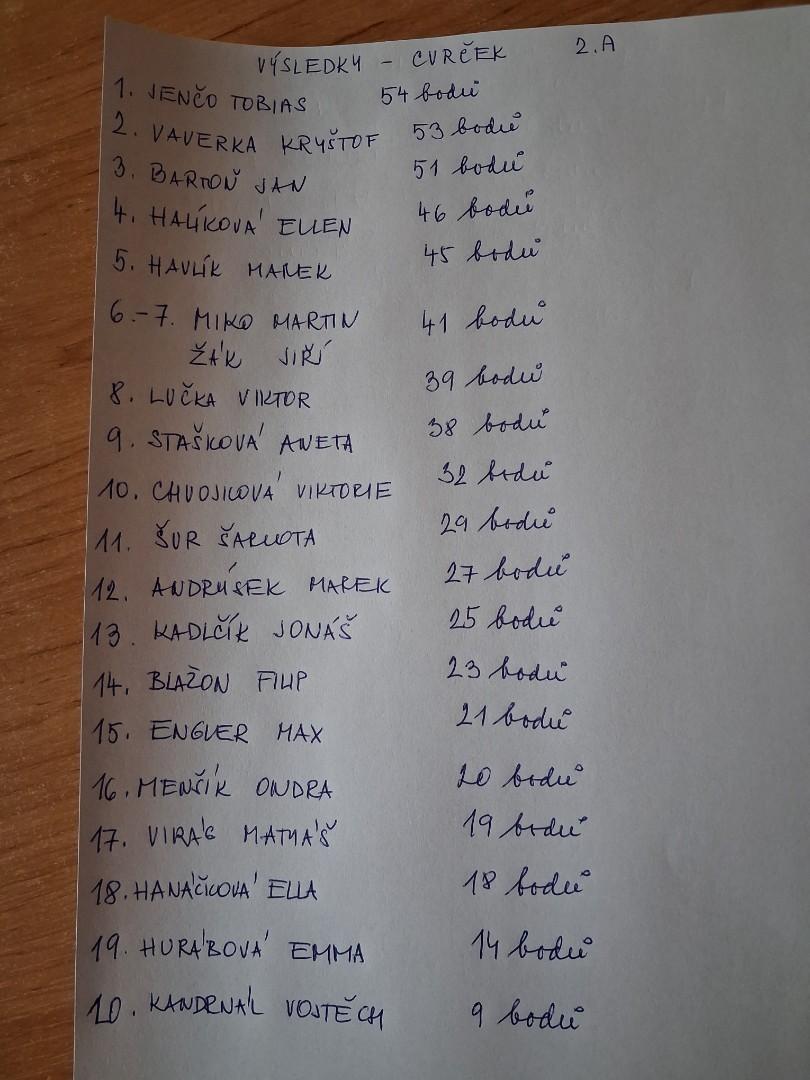 VÝSLEDKY - CVRČEK 2.A
1. JENČO TOBIAS 54 bodů
2. VAVERKA KRYŠTOF 53 bodů
3. BARTOŇ JAN 51 bodů
4. HALÍKOVÁ ELLEN 46 bodů
5. HAVLÍK MAREK 45 bodů
6.-7. MIKO MARTIN 41 bodů
ŽÁK JIŘÍ
8. LUČKA VIKTOR 39 bodů
9. STAŠKOVÁ ANETA 38 bodů
10. CHVOJKOVÁ VIKTORIE 32 bodů
11. ŠUR ŠARLOTA 29 bodů
12. ANDRÝSEK MAREK 27 bodů
13. KADLČÍK JONÁŠ 25 bodů
14. BLAŽON FILIP 23 bodů
15. ENGLER MAX 21 bodů
16. MENŠÍK ONDRA 20 bodů
17. VIRÁG MATYÁŠ 19 bodů
18. HANÁČKOVÁ ELLA 18 bodů
19. HURÁBOVÁ EMMA 14 bodů
20. KANDRNÁL VOJTĚCH 9 bodů